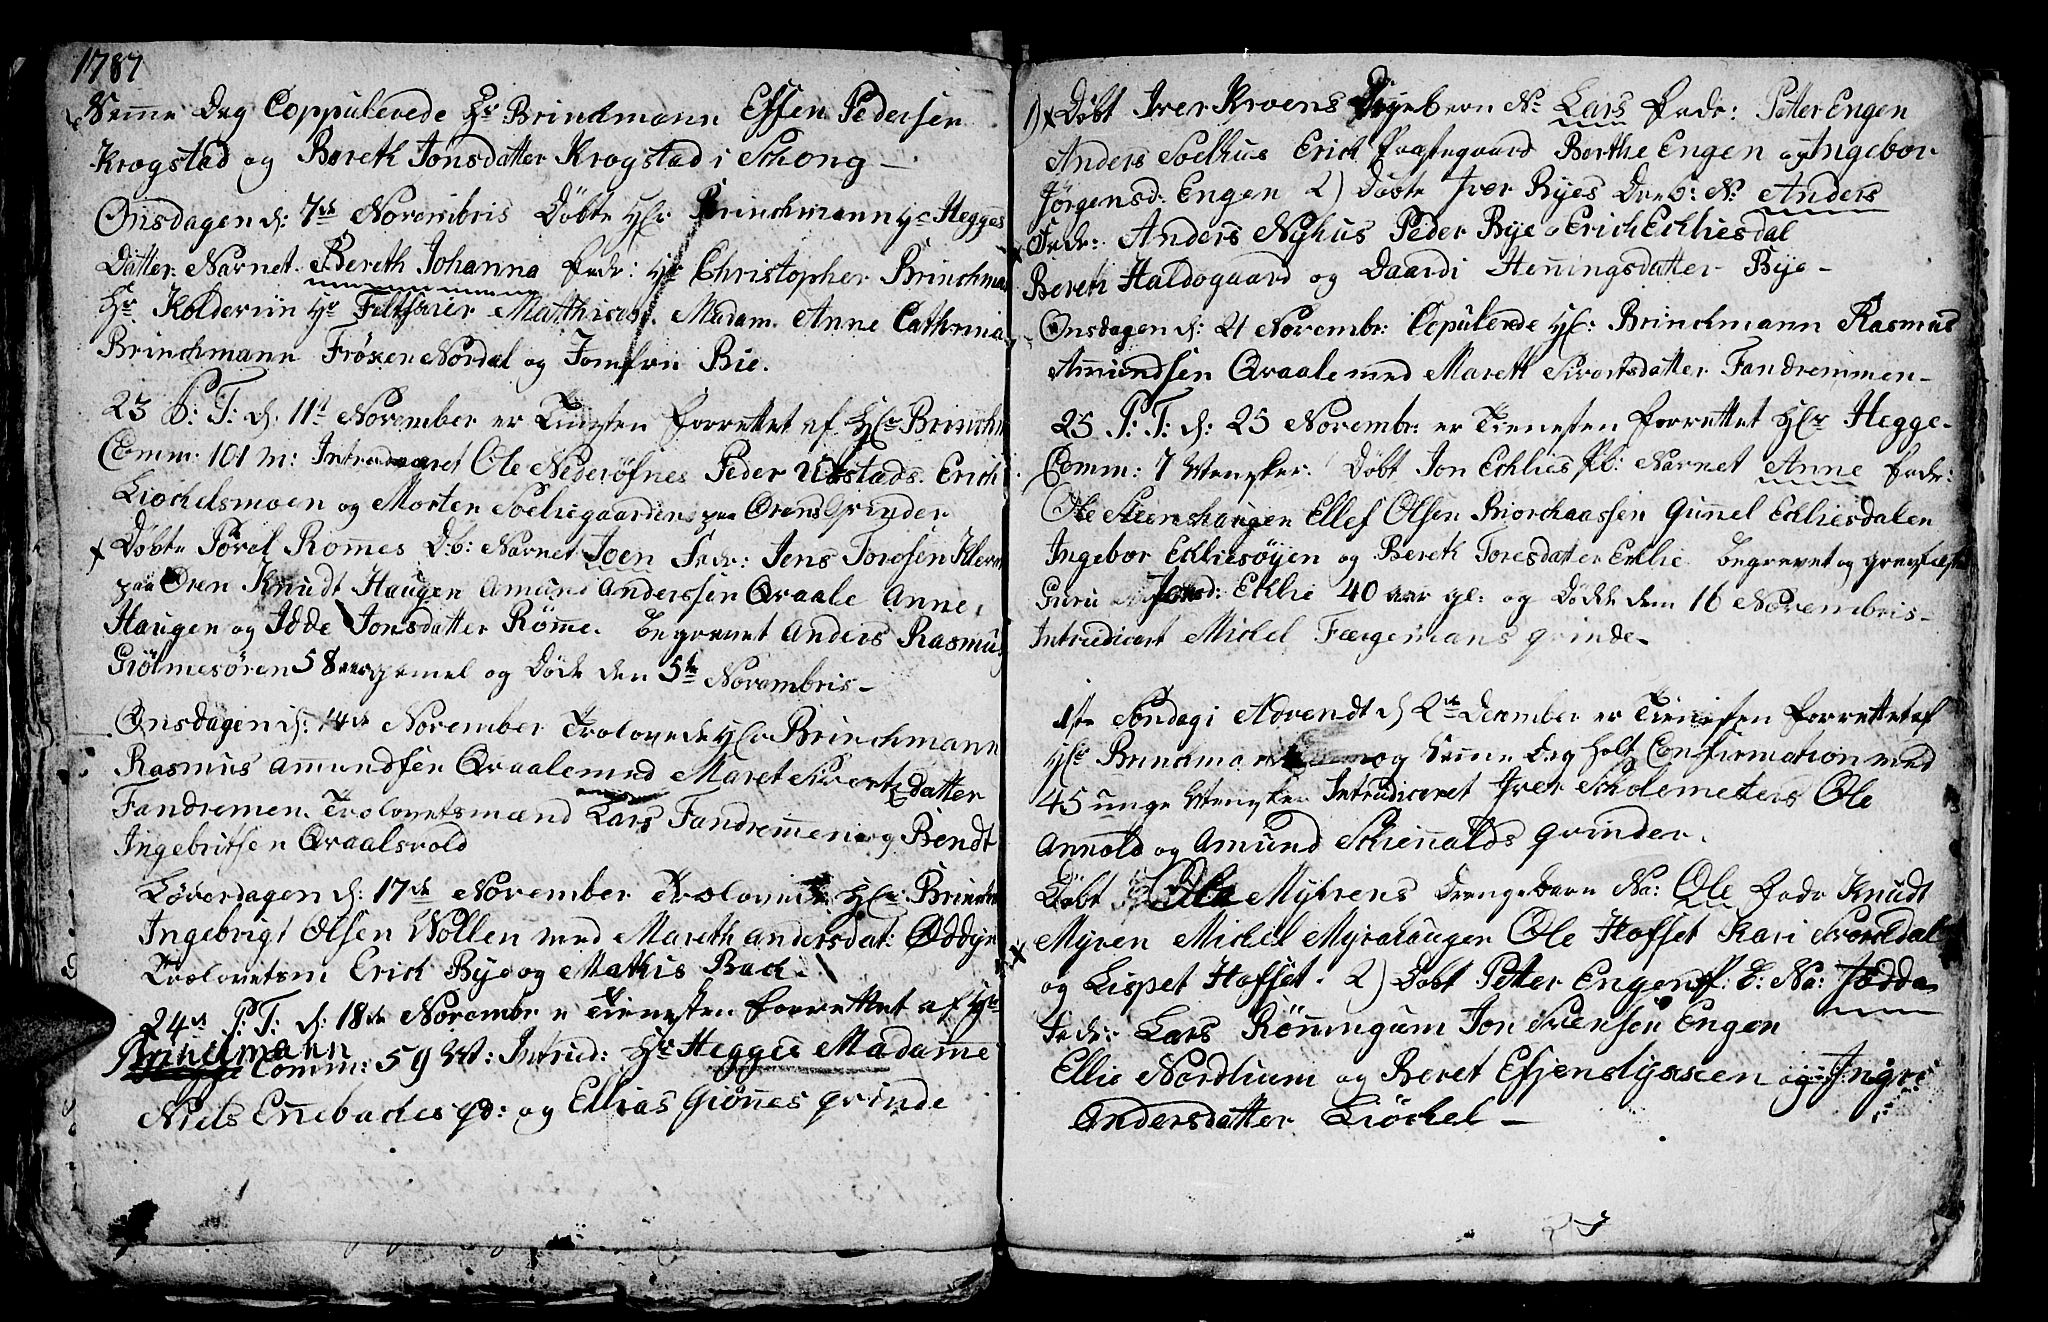 1787
Samme Dag Coppulerede Hr Brinchmann Essen Pedersen
Krogstad og Bereth Jonsdatter Krogstad i Schong -
Onsdagen d: 7de Novembris Døbte Hr: Brinchmann Hr Hegges
Datter Navnet Bereth Johanna Fadr: Hr Christopher Brinchma
Hr Kolderiin Hr Feltskiær Matthiesen. Madam. Anne Cathrina
Brinchmann Frøken Nordal og Jomfru Bie.
23 P: T: d. 11te November er Tiensten forrettet af Hr Brinchm
Comm: 101 M: Introduceret Ole Nederøfnes Peder Ustads. Erich
Liøchelsmoen og Morten Soeliegaardens paa Ørens Qrinder
Døbte Joral Rommes D.b: Navnet Joen Fadr: Jens Toresen Kleven
paa Ören Knudt Haugen Amund Anderssen Qvaale Anne
Haugen og Idde Jonsdatter Römme. begravet Anders Rasmus
Giölmesören 58 aar gamel og Døde den 5te Novembris -
Onsdagen d: 14de November Trolovede Hr Brinchmann
Rasmus Amundsen Qvaale med Maret Sivertsdatter
Fandremen. Trolovetsmænd Lars Fandremmen og Bendt
Ingebritsen Qvaalsvold
Løverdagen d: 17de November Trolovede Hr: Brinchm
Ingebrigt Olsen Wollen med Mareth Andersdat: Oddyn
Trolovetsm Erich Bye og Mathis Bach.
24de P: T: d: 18de Novembr er Tienesten forrettet af Hr
Brinchmann Comm: 59 M: Introd: Hr Hegges Madamme
Niels Enebaches qd: og Ellias Giönnes qrinde
1) Døbt Iver Kroens Pigebarn N: Lars Fadr: Petter Engen
Anders Solhus Erich Præstegaard Berthe Engen og Ingebor
Jörgensd: Engen 2) Døbte Iver Byes Dreb: N: Anders
Fadr: Anders Nyhus Peder Bye Erich Echliesdal
Bereth Haldogaard og Daardi Henningsdatter Bye -
Onsdagen d: 21 Novembr: Copulerede Hr: Brinchmann Rasmus
Amundsen Qvaale med Mareth Sivertsdatter Fandremmen -
25 P: T: d: 25 Novembr: er Tienesten forrettet Hr Hegge -
Comm: 7 Mensker. Døbt Jon Echlies Pb: Navnet Anne Fadr:
Ole Steenshaugen Ellef Olsen Biorchaassen Gunnel Echliesdalen
Ingebor Echliesöyen og Bereth Toresdatter Echlie begravet og
Guru Jonsd: Echlie 40 aar gl: og Dödde dem 16 Novembris -
Introducert Michel Færgemans qrinde -
1ste Söndag i Advendt d 2de December er Tienesten forrettet af
Hr Brinchmann og samme Dag holt Confirmation med
45 unge Mensker Introduceret Iver Scholemesters Ole
Annold og Amund Schienalds qrinder.
Døbt Ole Myhrens Drengebarn Na: Ole Fadr Knudt
Myren Michel Myrahaugen Ole Hofset Kari Svorchdal
og Lispet Hofset. 2) Døbt Petter Engens P: b: Na: Jødda
Fadr: Lars Rönningum Jon Svensen Engen
Ellie Nordhum og Beret Esfenslyckien og Ingri
Andersdatter Liöchel -